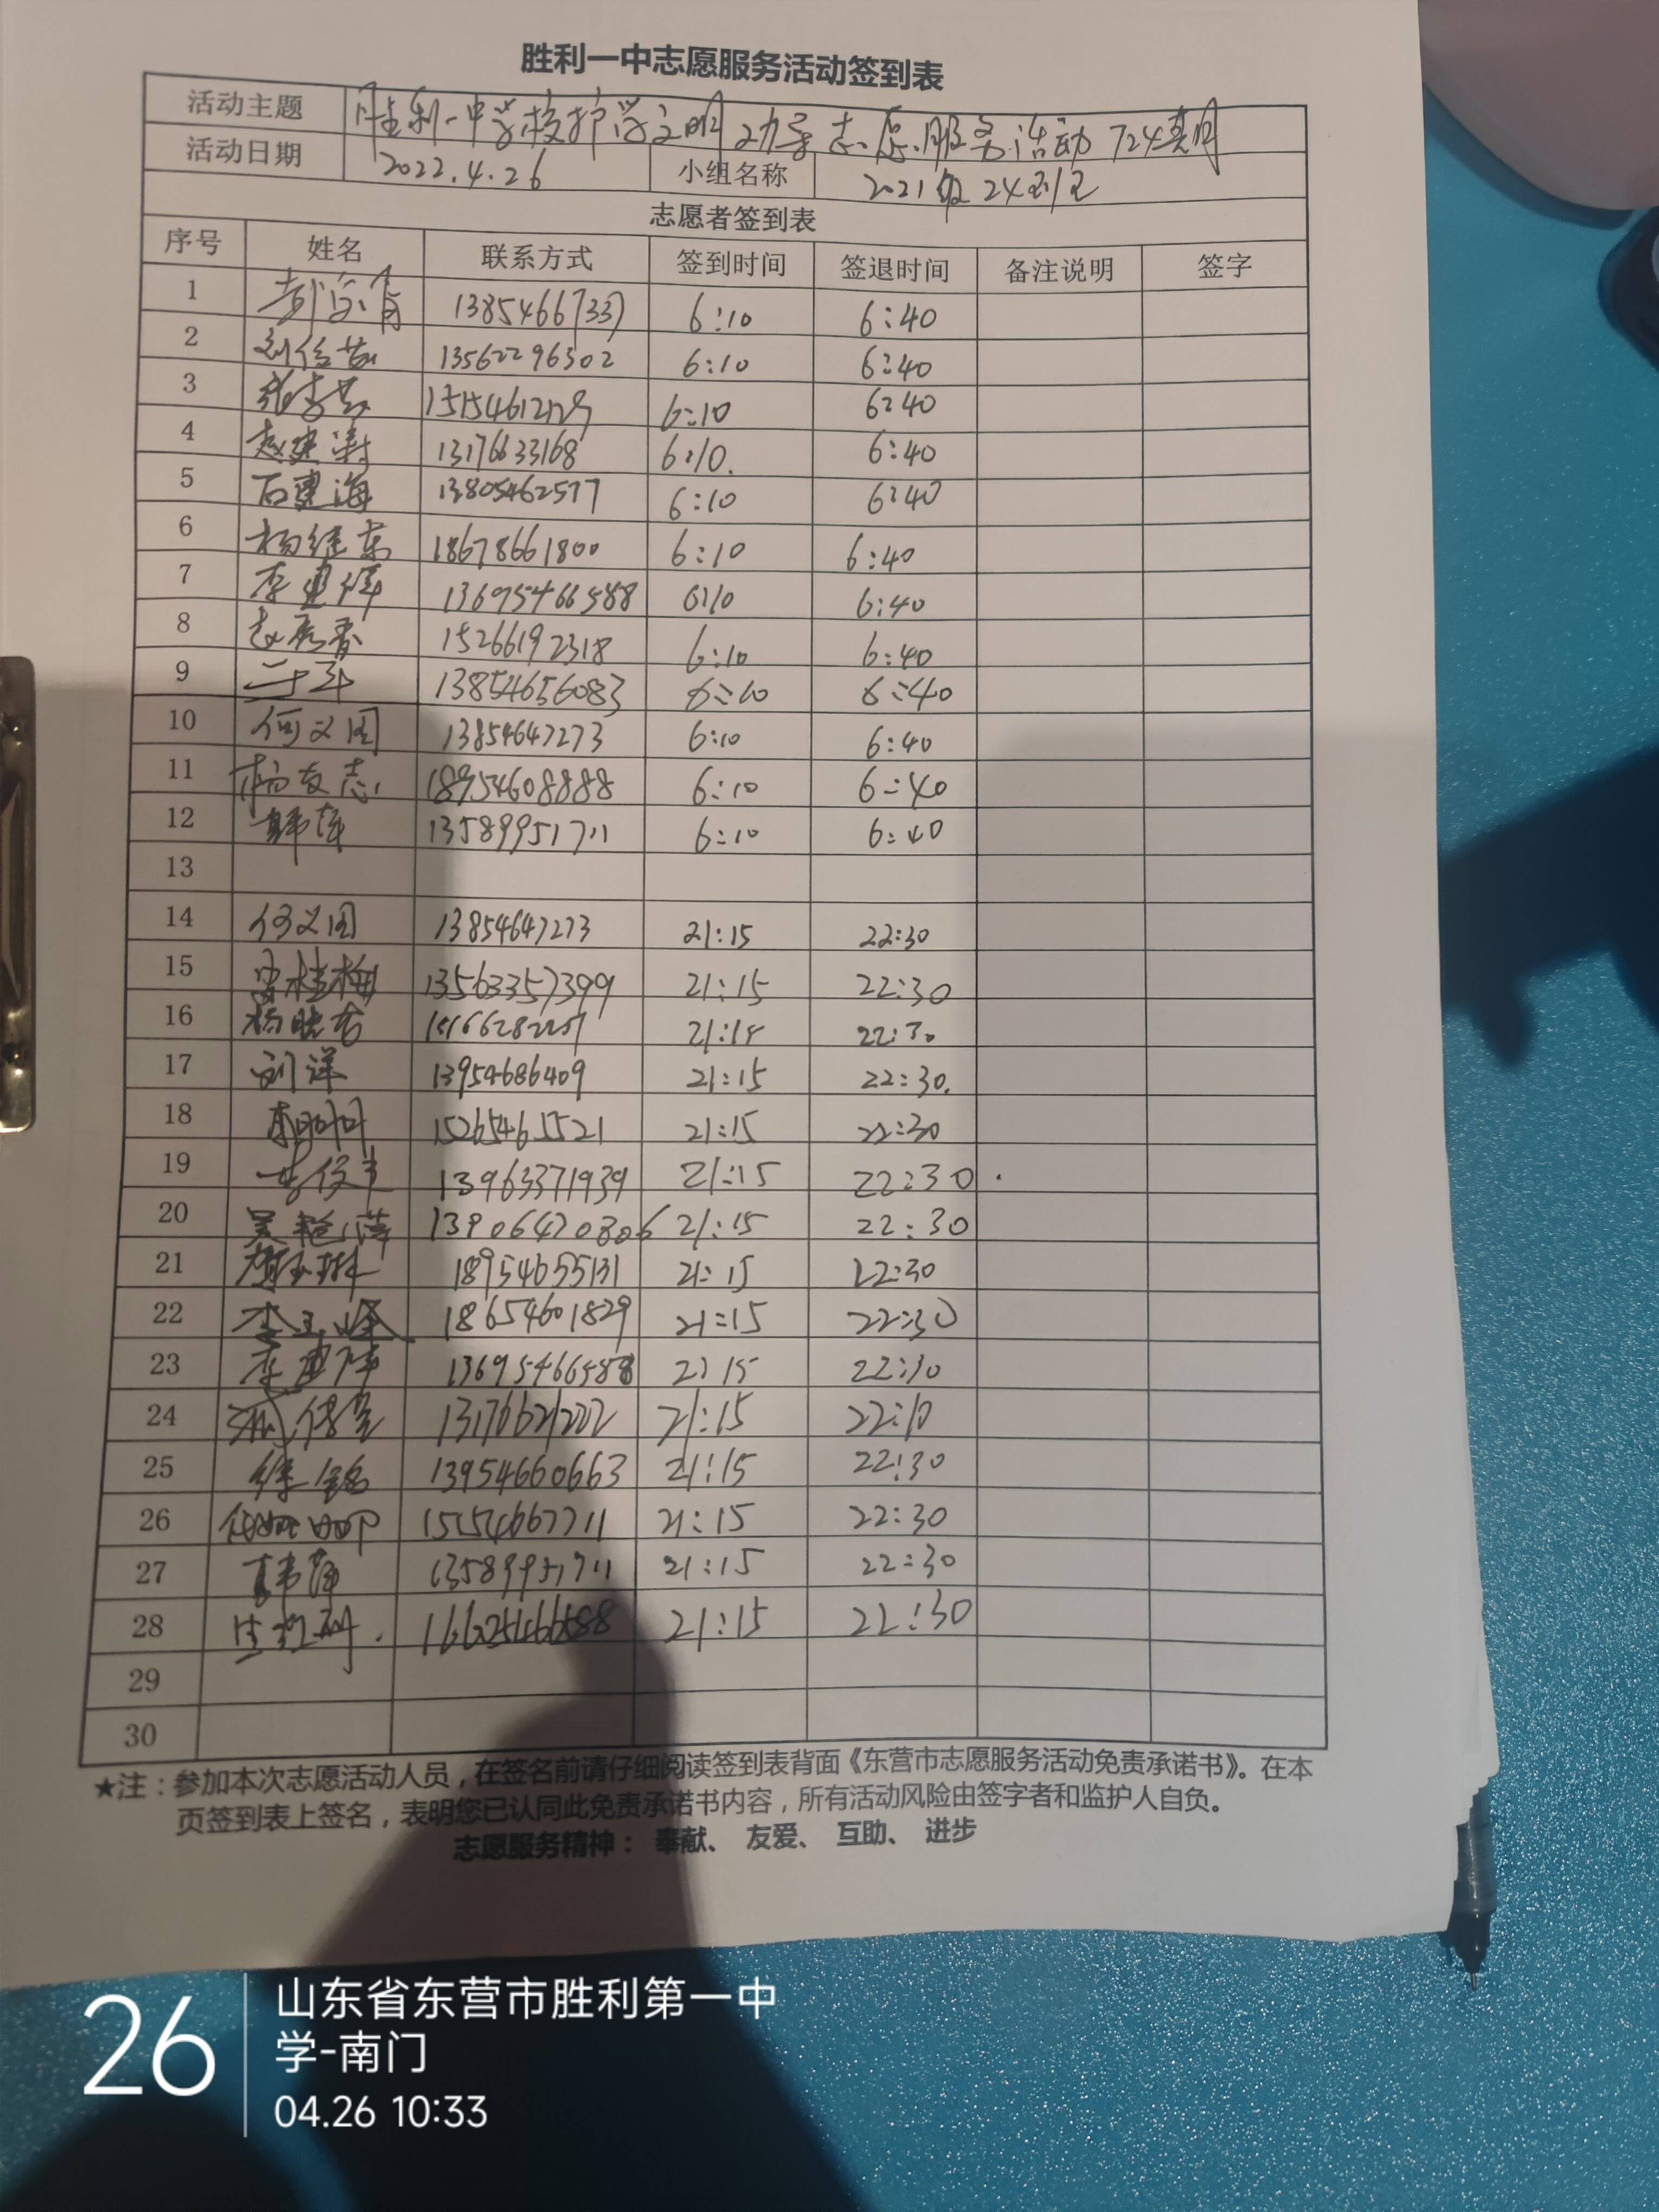 胜利一中志愿服务活动签到表
活动主题 胜利一中学校护学文明劝导志愿服务活动
活动日期 2022.4.26 小组名称 2021级24
志愿者签到表
序号 姓名 联系方式 签到时间 签退时间 备注说明 签字
1 6:10 6:40
2 13562296302 6:10 6:40
3 6:10 6:40
4 13176633168 6:10. 6:40
5 石建海 13805462577 6:10 6:40
6 杨继东 18678661800 6:10 6:40
7 李建伟 13695466588 6:10 6:40
8 15266192318 6:10 6:40
9 13854656083 6:10 6:40
10 何义国 13854647273 6:10 6:40
11 杨友志 18954608888 6:10 6:40
12 13589951711 6:10 6:40
13
14 何义国 13854647273 21:15 22:30
15 13563357399 21:15 22:30
16 21:15 22:30
17 刘洋 13954686409 21:15 22:30.
18 15265465521 21:15 22:30
19 13963371939 21:15 22:30
20 吴艳萍 13906470306 21:15 22:30
21 18954655131 21:15 22:30
22 李玉峰 18654601829 21:15 22:30
23 李建伟 13695466588 21:15 22:30
24 21:15
25 徐铭 13954660663 21:15 22:30
26 15154667711 21:15 22:30
27 13589951711 21:15 22:30
28 21:15 22:30
29
30
★注：参加本次志愿活动人员，在签名前请仔细阅读签到表背面《东营市志愿服务活动免责承诺书》。在本
页签到表上签名，表明您已认同此免责承诺书内容，所有活动风险由签字者和监护人自负。
志愿服务精神： 奉献、 友爱、 互助、 进步
26
山东省东营市胜利第一中
学-南门
04.26 10:33